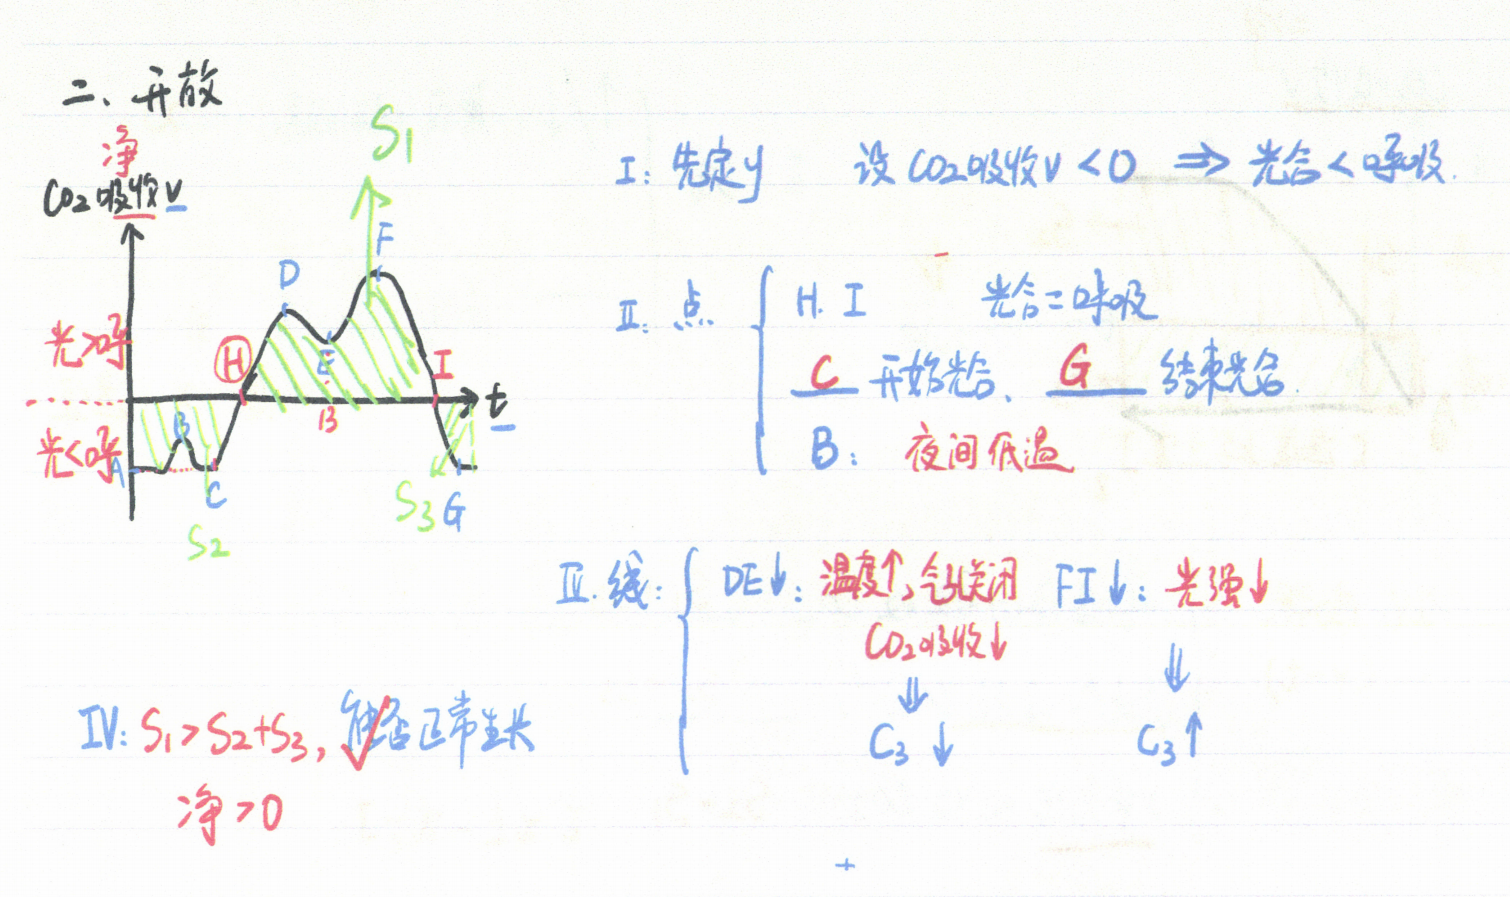 二、开放
净
CO₂吸收V
S₁
F
D
光>呼
H
E
I
B
t
光<呼
A
B
C
S₂
S₃
G
I: 先定y 设CO₂吸收V<0 ⇒ 光合<呼吸.
II: 点
H. I 光合=呼吸
C 开始光合、 G 结束光合.
B: 夜间低温
III. 线:
DE↓: 温度↑,气孔关闭
CO₂吸收↓
⇓
C₃↓
FI↓: 光强↓
⇓
C₃↑
IV: S₁>S₂+S₃, 能否正常生长
净>0